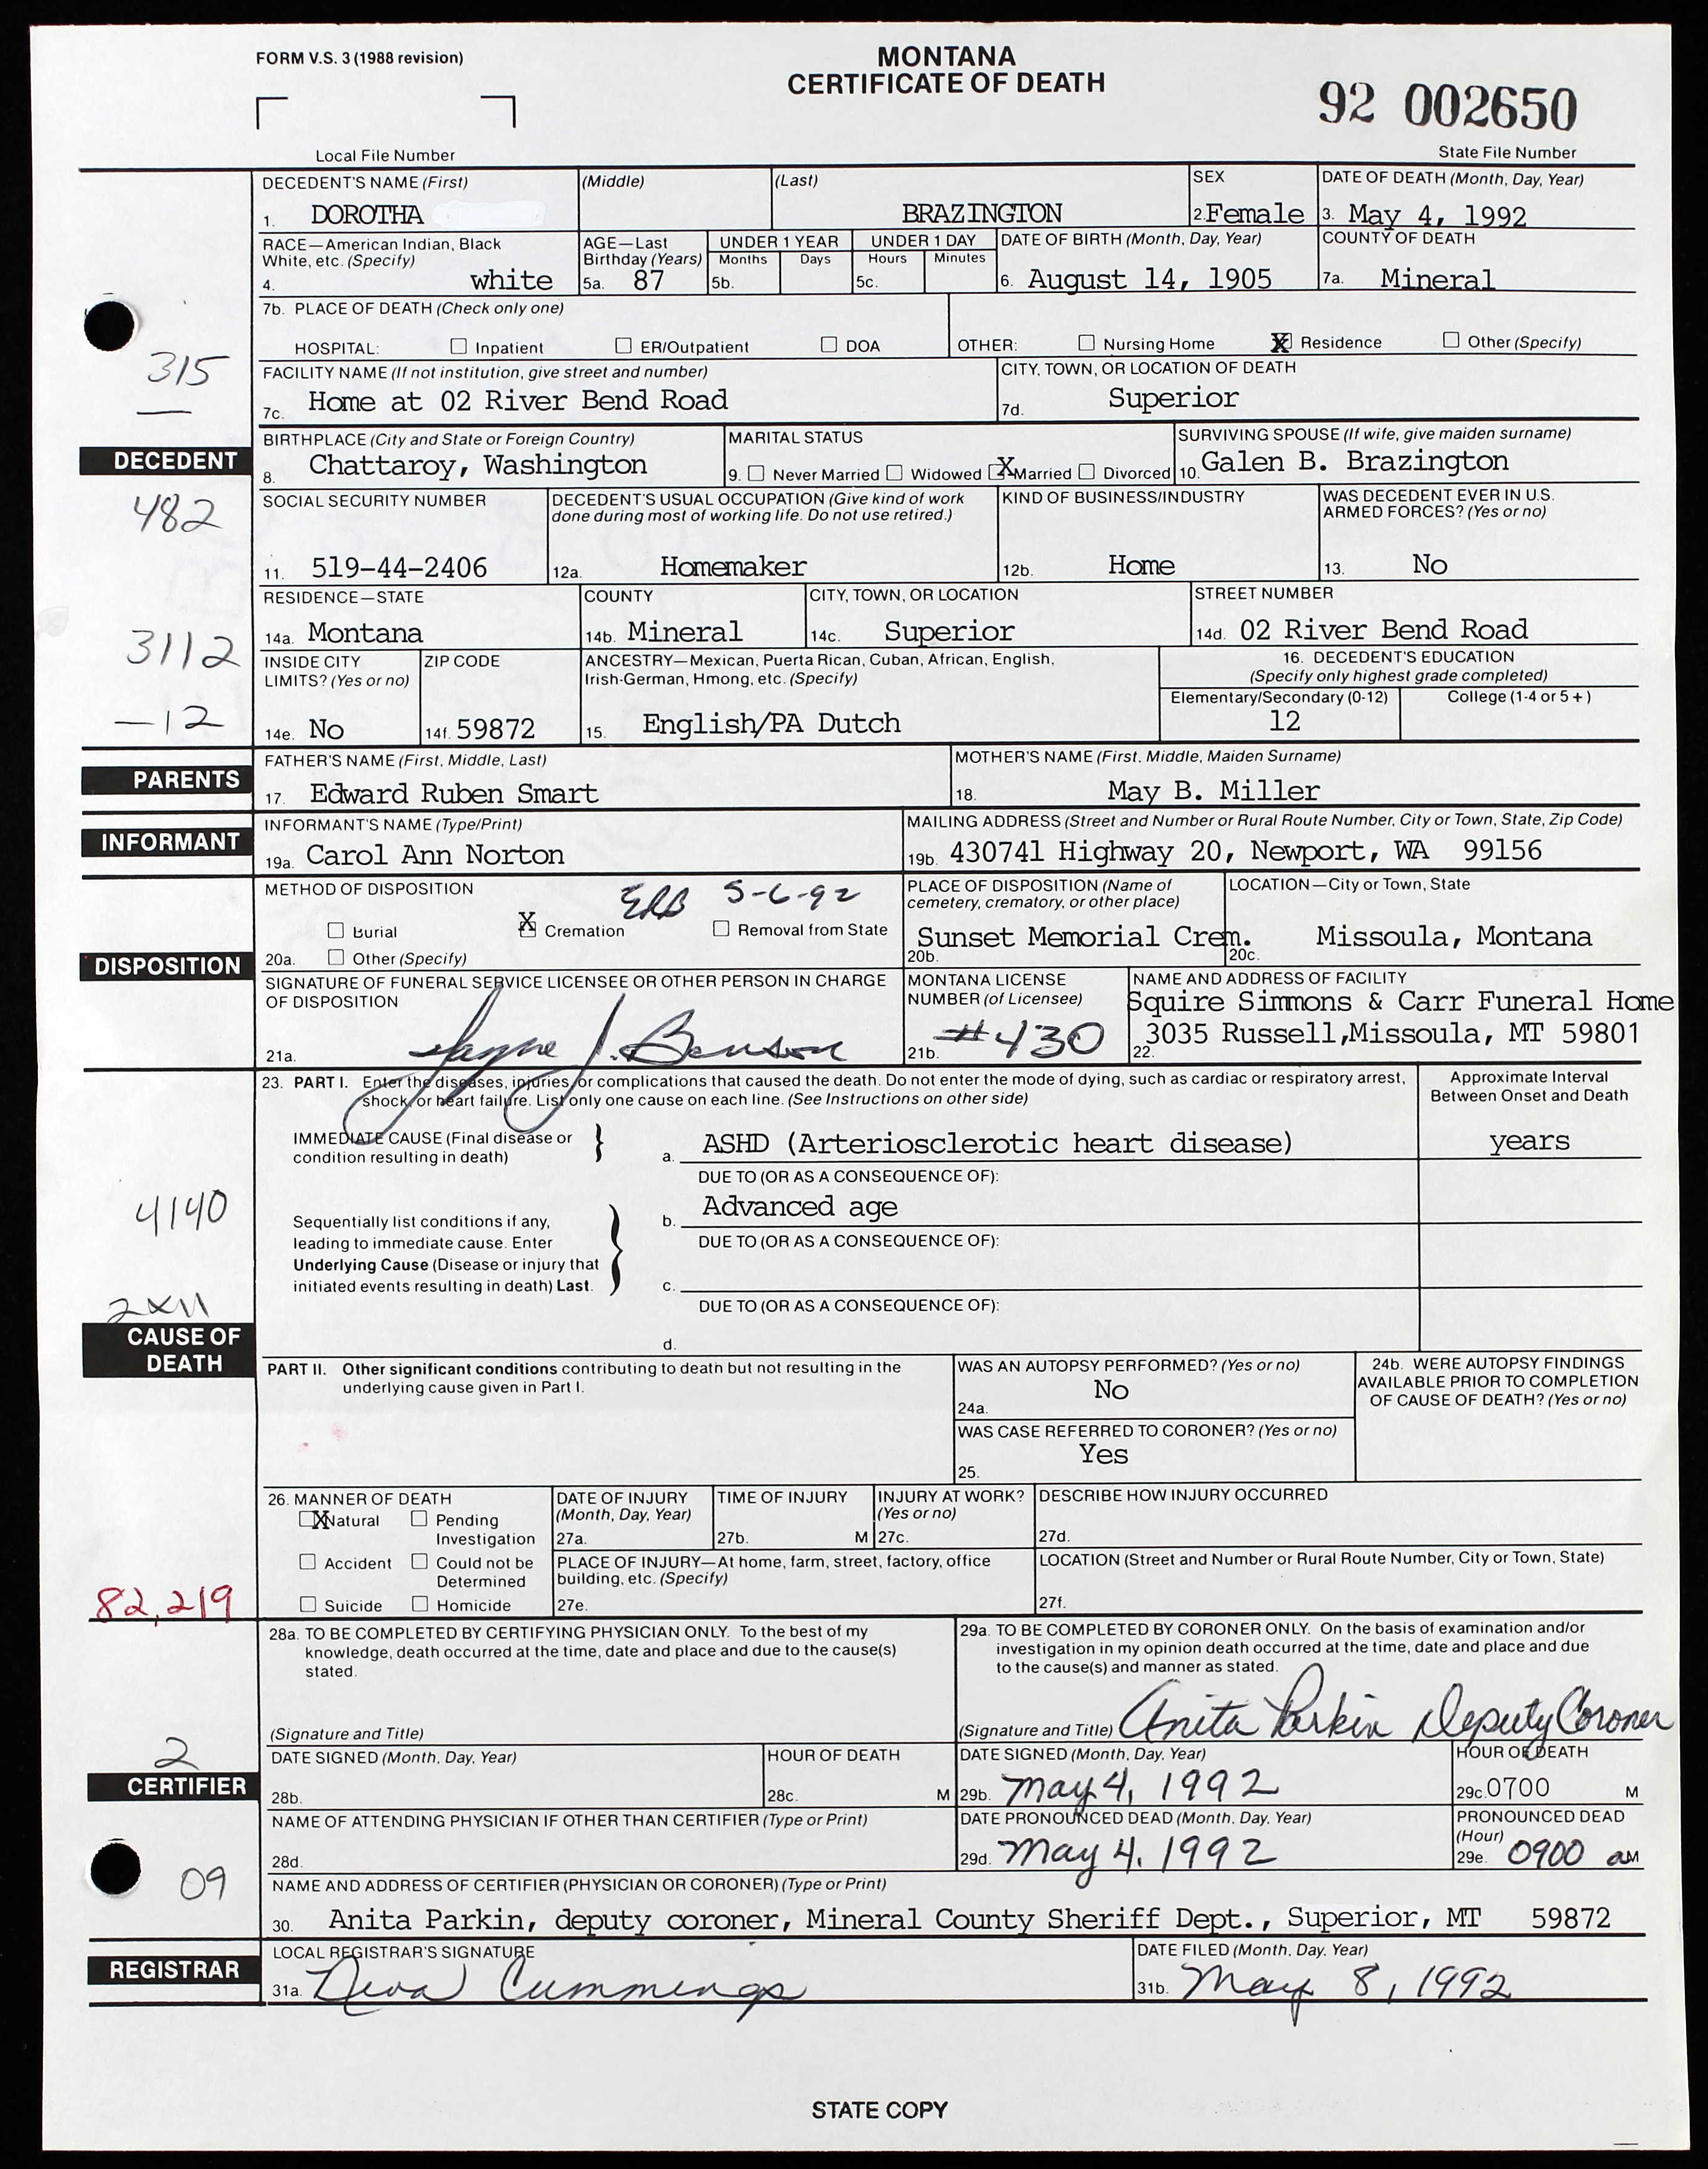 FORM V.S. 3 (1988 revision)
MONTANA
CERTIFICATE OF DEATH
92 002650
Local File Number
State File Number
DECEDENT'S NAME (First) (Middle) (Last) SEX DATE OF DEATH (Month, Day, Year)
1. DOROTHA BRAZINGTON 2. Female 3. May 4, 1992
RACE—American Indian, Black AGE—Last UNDER 1 YEAR UNDER 1 DAY DATE OF BIRTH (Month, Day, Year) COUNTY OF DEATH
White, etc. (Specify) Birthday (Years) Months Days Hours Minutes
4. white 5a. 87 5b. 5c. 6. August 14, 1905 7a. Mineral
7b. PLACE OF DEATH (Check only one)
HOSPITAL: Inpatient ER/Outpatient DOA OTHER: Nursing Home X Residence Other (Specify)
315
FACILITY NAME (If not institution, give street and number) CITY, TOWN, OR LOCATION OF DEATH
7c. Home at 02 River Bend Road 7d. Superior
BIRTHPLACE (City and State or Foreign Country) MARITAL STATUS SURVIVING SPOUSE (If wife, give maiden surname)
DECEDENT
8. Chattaroy, Washington 9. Never Married Widowed X Married Divorced 10. Galen B. Brazington
482
SOCIAL SECURITY NUMBER DECEDENT'S USUAL OCCUPATION (Give kind of work KIND OF BUSINESS/INDUSTRY WAS DECEDENT EVER IN U.S.
done during most of working life. Do not use retired.) ARMED FORCES? (Yes or no)
11. 519-44-2406 12a. Homemaker 12b. Home 13. No
RESIDENCE—STATE COUNTY CITY, TOWN, OR LOCATION STREET NUMBER
14a. Montana 14b. Mineral 14c. Superior 14d. 02 River Bend Road
3112
INSIDE CITY ZIP CODE ANCESTRY—Mexican, Puerta Rican, Cuban, African, English, 16. DECEDENT'S EDUCATION
LIMITS? (Yes or no) Irish-German, Hmong, etc. (Specify) (Specify only highest grade completed)
Elementary/Secondary (0-12) College (1-4 or 5+)
-12
14e. No 14f. 59872 15. English/PA Dutch 12
PARENTS
FATHER'S NAME (First, Middle, Last) MOTHER'S NAME (First, Middle, Maiden Surname)
17. Edward Ruben Smart 18. May B. Miller
INFORMANT
INFORMANT'S NAME (Type/Print) MAILING ADDRESS (Street and Number or Rural Route Number, City or Town, State, Zip Code)
19a. Carol Ann Norton 19b. 430741 Highway 20, Newport, WA 99156
METHOD OF DISPOSITION 5-6-92 PLACE OF DISPOSITION (Name of LOCATION—City or Town, State
cemetery, crematory, or other place)
Burial X Cremation Removal from State Sunset Memorial Crem. Missoula, Montana
20a. Other (Specify) 20b. 20c.
DISPOSITION
SIGNATURE OF FUNERAL SERVICE LICENSEE OR OTHER PERSON IN CHARGE MONTANA LICENSE NAME AND ADDRESS OF FACILITY
OF DISPOSITION NUMBER (of Licensee) Squire Simmons & Carr Funeral Home
21a. J. Benson 21b. #430 22. 3035 Russell,Missoula, MT 59801
23. PART I. Enter the diseases, injuries, or complications that caused the death. Do not enter the mode of dying, such as cardiac or respiratory arrest, Approximate Interval
shock, or heart failure. List only one cause on each line. (See Instructions on other side) Between Onset and Death
IMMEDIATE CAUSE (Final disease or
condition resulting in death) a. ASHD (Arteriosclerotic heart disease) years
DUE TO (OR AS A CONSEQUENCE OF):
4140
Sequentially list conditions if any, b. Advanced age
leading to immediate cause. Enter DUE TO (OR AS A CONSEQUENCE OF):
Underlying Cause (Disease or injury that
initiated events resulting in death) Last. c.
DUE TO (OR AS A CONSEQUENCE OF):
d.
CAUSE OF
DEATH
PART II. Other significant conditions contributing to death but not resulting in the WAS AN AUTOPSY PERFORMED? (Yes or no) 24b. WERE AUTOPSY FINDINGS
underlying cause given in Part I. AVAILABLE PRIOR TO COMPLETION
24a. No OF CAUSE OF DEATH? (Yes or no)
WAS CASE REFERRED TO CORONER? (Yes or no)
25. Yes
26. MANNER OF DEATH DATE OF INJURY TIME OF INJURY INJURY AT WORK? DESCRIBE HOW INJURY OCCURRED
X Natural Pending (Month, Day, Year) (Yes or no)
Investigation 27a. 27b. M 27c. 27d.
Accident Could not be PLACE OF INJURY—At home, farm, street, factory, office LOCATION (Street and Number or Rural Route Number, City or Town, State)
Determined building, etc. (Specify)
Suicide Homicide 27e. 27f.
82,219
28a. TO BE COMPLETED BY CERTIFYING PHYSICIAN ONLY. To the best of my 29a. TO BE COMPLETED BY CORONER ONLY. On the basis of examination and/or
knowledge, death occurred at the time, date and place and due to the cause(s) investigation in my opinion death occurred at the time, date and place and due
stated. to the cause(s) and manner as stated.
(Signature and Title) (Signature and Title) Anita Parkin Deputy Coroner
2
DATE SIGNED (Month, Day, Year) HOUR OF DEATH DATE SIGNED (Month, Day, Year) HOUR OF DEATH
CERTIFIER
28b. 28c. M 29b. May 4, 1992 29c. 0700 M
NAME OF ATTENDING PHYSICIAN IF OTHER THAN CERTIFIER (Type or Print) DATE PRONOUNCED DEAD (Month, Day, Year) PRONOUNCED DEAD
(Hour)
28d. 29d. May 4, 1992 29e. 0900 aM
09
NAME AND ADDRESS OF CERTIFIER (PHYSICIAN OR CORONER) (Type or Print)
30. Anita Parkin, deputy coroner, Mineral County Sheriff Dept., Superior, MT 59872
REGISTRAR
LOCAL REGISTRAR'S SIGNATURE DATE FILED (Month, Day, Year)
31a. Neva Cummings 31b. May 8, 1992
STATE COPY